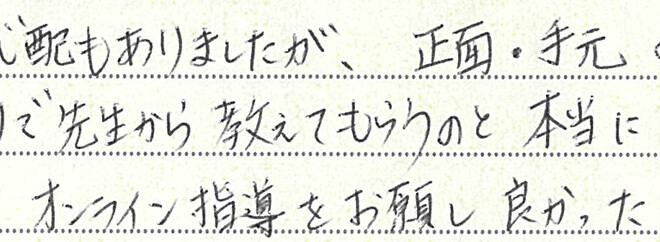 心配もありましたが、正面・手元
で先生から教えてもらうのと本当に
オンライン指導をお願し良かった